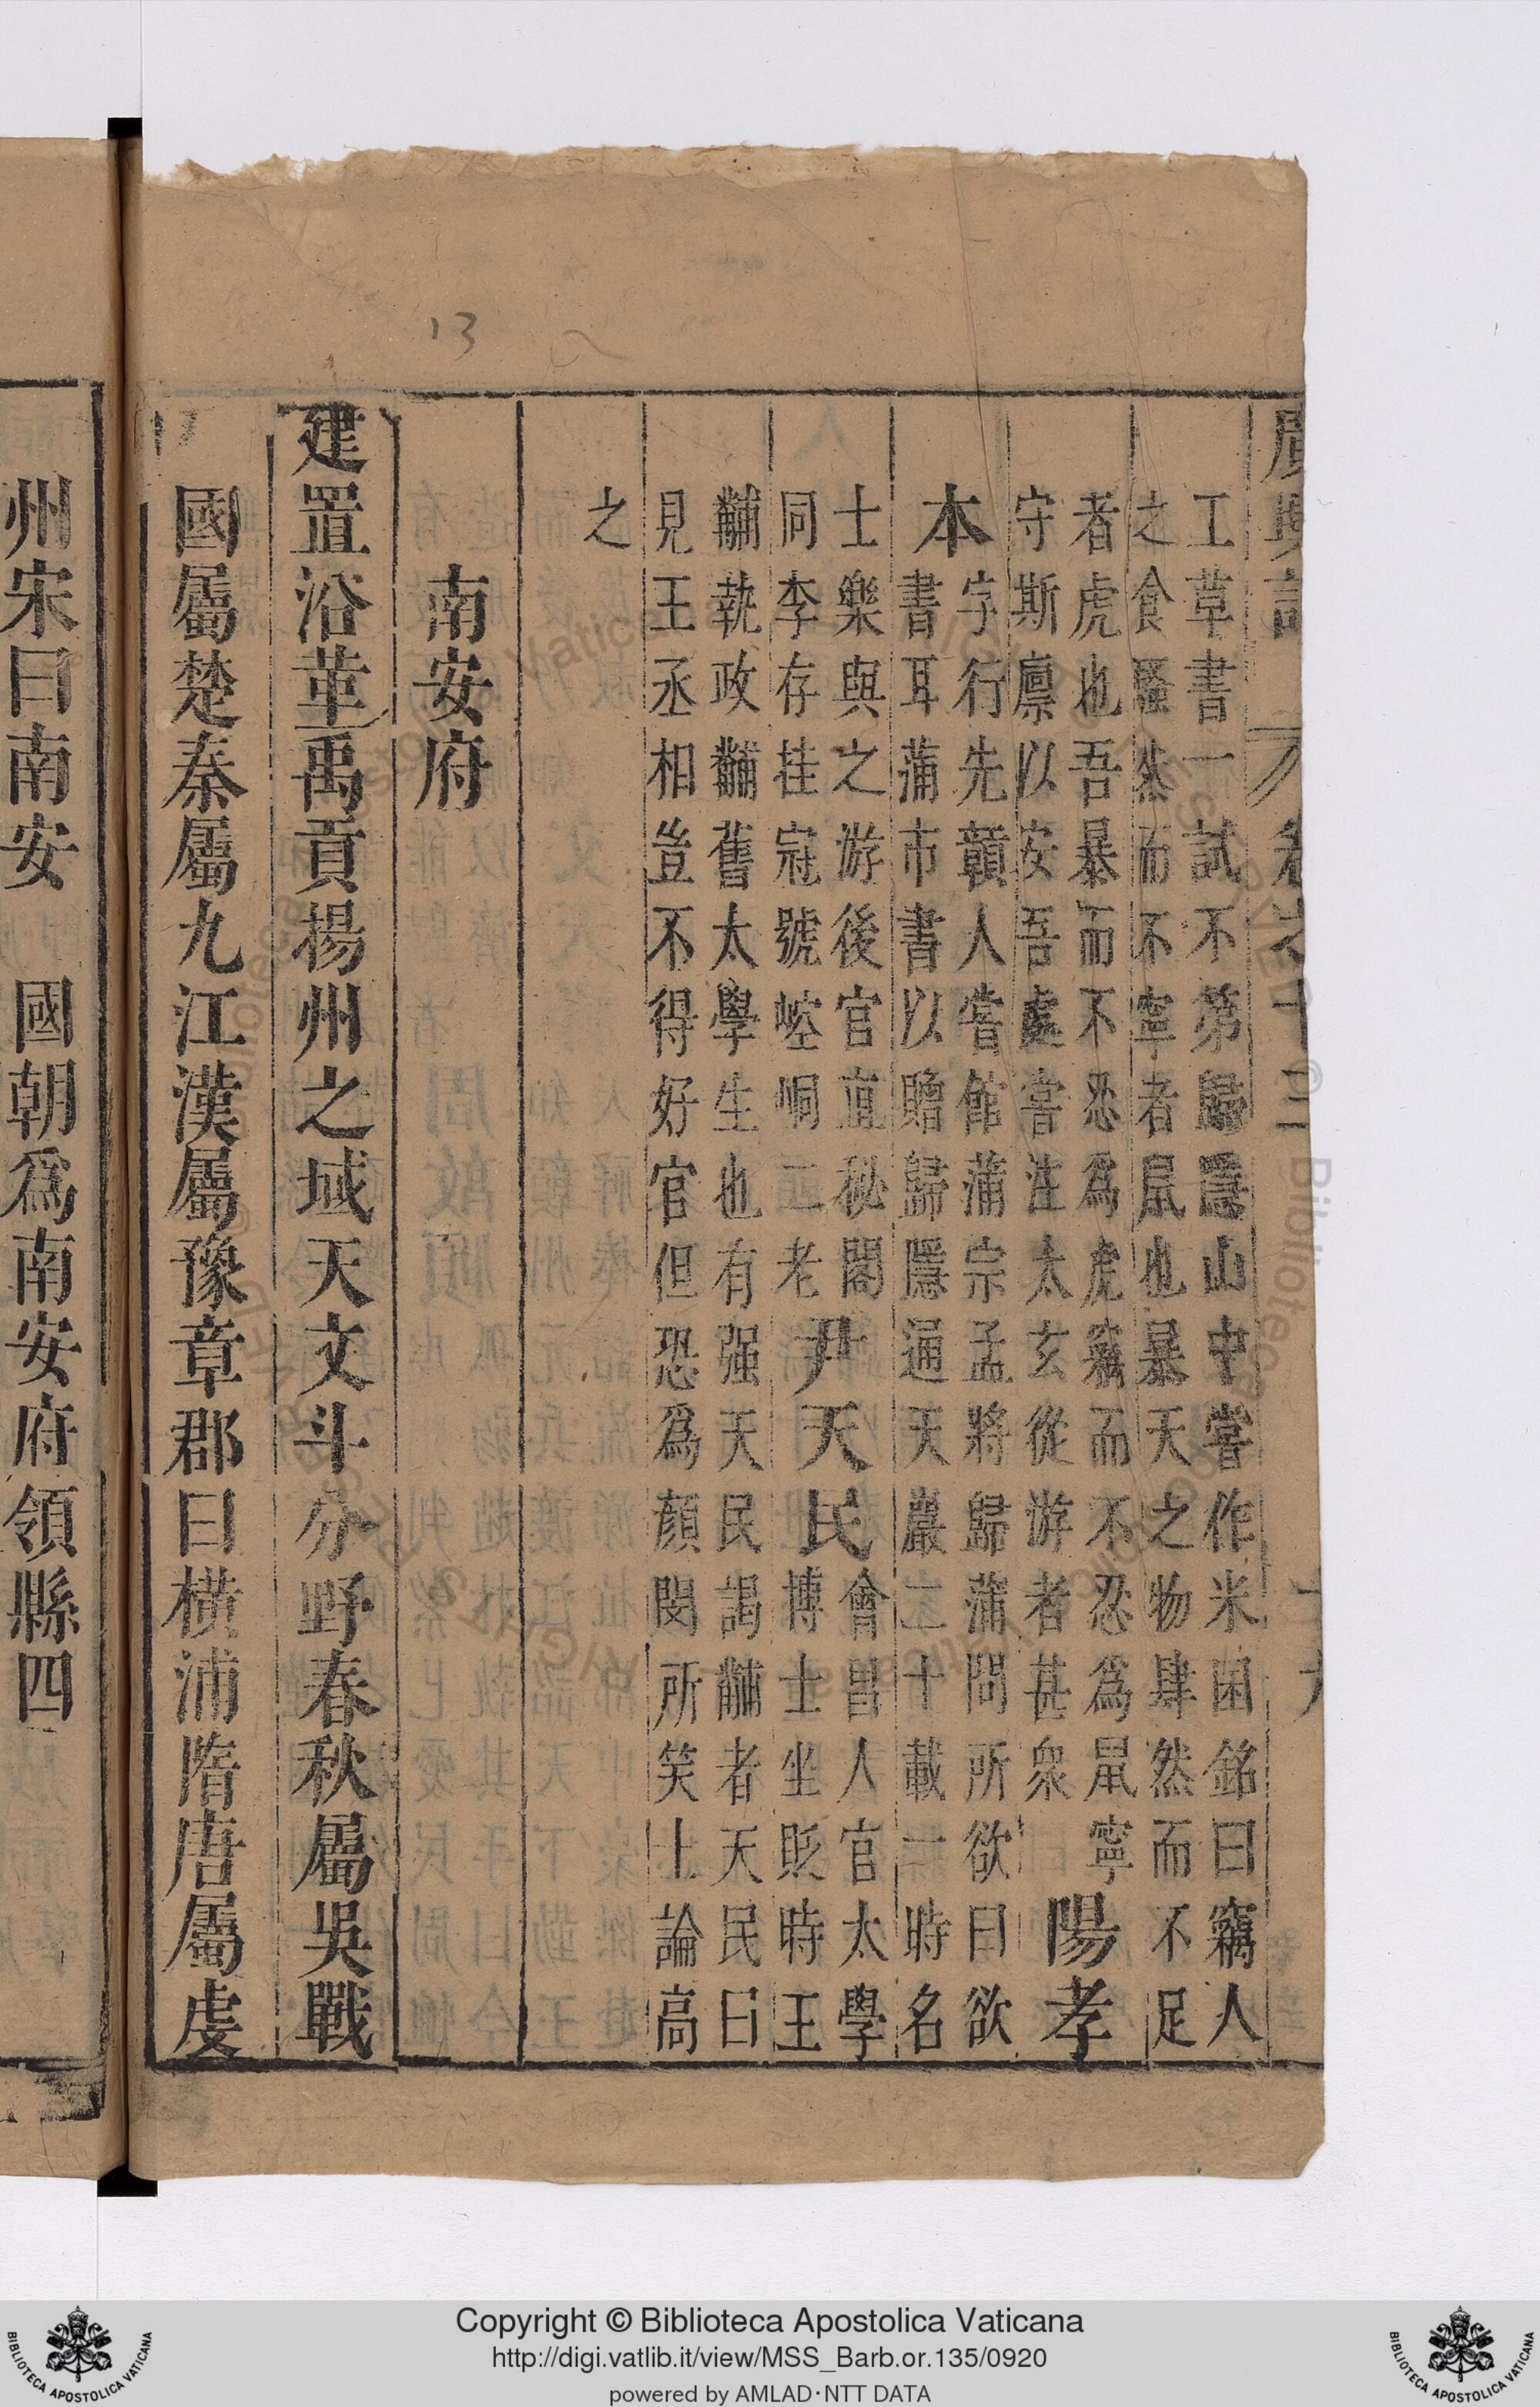 廣輿記 卷之十二
工草書一試不第歸隱山中嘗作米囷銘曰竊人
之食騷然而不寧者鼠也暴天之物肆然而不足
者虎也吾暴而不恐爲虎竊而不忍爲鼠寧
守斯廪以安吾處嘗注太玄從游者甚衆
陽孝
本
字行先贑人嘗館蒲宗孟將歸蒲問所欲曰欲
書耳蒲市書以贈歸隱通天巖二十載一時名
士樂與之游後官直秘閣
同李存挂冠號崆峒二老
尹天民
會昌人官太學
博士坐貶時王
黼執政黼舊太學生也有强天民謁黼者天民曰
見王丞相豈不得好官但恐爲顔閔所笑士論高
之
南安府
建置沿革禹貢楊州之域天文斗分野春秋屬吳戰
國屬楚秦屬九江漢屬豫章郡曰橫浦隋唐屬虔
州宋曰南安 國朝爲南安府領縣四
13
Copyright © Biblioteca Apostolica Vaticana
http://digi.vatlib.it/view/MSS_Barb.or.135/0920
powered by AMLAD·NTT DATA
BIBLIOTECA APOSTOLICA VATICANA
BIBLIOTECA APOSTOLICA VATICANA